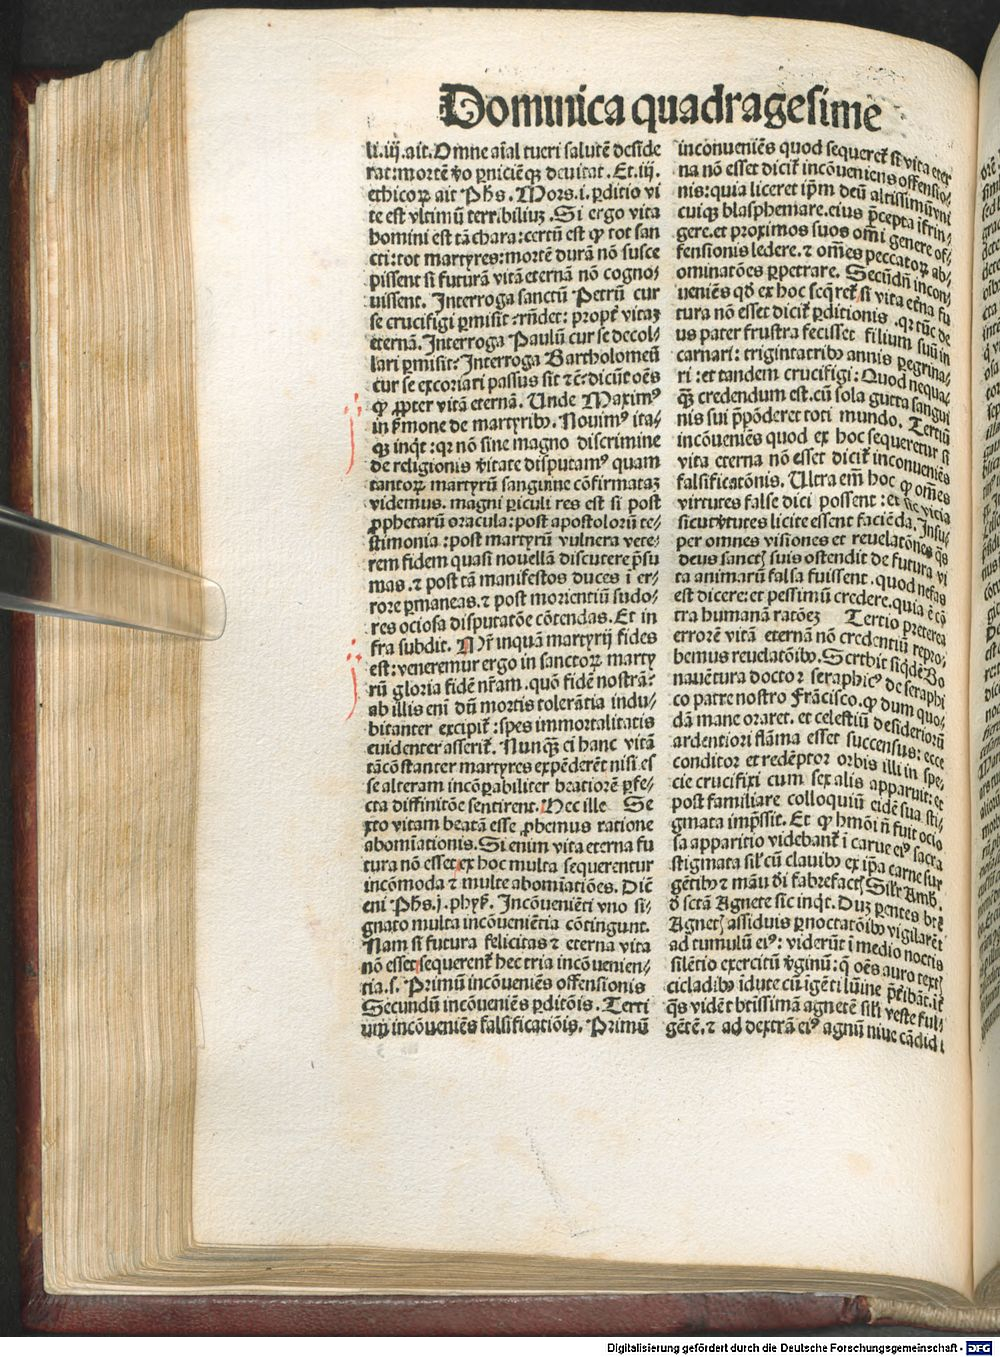 Dominica quadragesime
li.iij.ait.Omne aīal tueri salutē deside
rat:mortē ꝟo ꝑniciēqꝫ deuitat. Et.iij.
ethicoꝝ ait Phs. Mors.i.ꝑditio vi
te est vltimū terribiliuꝫ. Si ergo vita
homini est tā chara:certū est ꝙ tot san
cti:tot martyres:mortē durā nō susce
pissent si futurā vitā eternā nō cogno⸗
uissent. Interroga sanctū Petrū cur
se crucifigi ꝑmisit:rn̄det: ꝓpt̄ vitaꝫ
eternā. Interroga Paulū cur se decol⸗
lari ꝑmisit: Interroga Bartholomeū
cur se excoriari passus sit ⁊c̄:dicūt oēs
ꝙ ꝓpter vitā eternā. Unde Maximꝰ
in ẜmone de martyribꝰ. Nouimꝰ ita⸗
qꝫ inqt̄: qꝛ nō sine magno discrimine
de religionis ꝟitate disputamꝰ quam
tantoꝝ martyrū sanguine cōfirmataꝫ
videmus. magni ꝑiculi res est si post
ꝓphetarū oracula:post apostolorū te⸗
stimonia:post martyrū vulnera vete⸗
rem fidem quasi nouellā discutere p̄su
mas.⁊ post tā manifestos duces ī er⸗
rore ꝑmaneas.⁊ post morientiū sudo⸗
res ociosa disputatōe cōtendas. Et in
fra subdit. Mr̄ inquā martyrij fides
est:veneremur ergo in sanctoꝝ marty
rū gloria fidē nr̄am.quō fidē nostrā:
ab illis eni dn̄ mortis tolerātia indu⸗
bitanter excipit̄: spes immortalitatis
euidenter asserit̄. Nunqꝫ ei hanc vitā
tācōstanter martyres expēderēt nisi es
se alteram incōꝑabiliter beatiorē ꝑfe⸗
cta diffinitōe sentirent. Hec ille Se
xto vitam beatā esse ꝓbemus ratione
abomīationis. Si enim vita eterna fu
tura nō esset ex hoc multa sequerentur
incōmoda ⁊ multe abomīatiōes. Dic̄
eni Phs.j.phyẜ. Incōueniēti vno si⸗
gnato multa incōueniētia cōtingunt.
Nam si futura felicitas ⁊ eterna vita
nō esset sequerent̄ hec tria incōuenien⸗
tia.s. Primū incōueniēs offensionis
Secundū incōueniēs ꝑditōis. Terti
um incōueniēs falsificatiōis. Primū
inconueniēs quod sequeret̄ si vita eter
na nō esset dicit̄ incōueniens offensio⸗
nis:quia liceret ip̄m deū altissimū vni
cuiqꝫ blasphemare.eius p̄cepta īfrin⸗
gere.et proximos suos om̄i genere of⸗
fensionis ledere.⁊ om̄es peccatoꝝ ab⸗
ominatōes ꝑpetrare. Secūdū incon⸗
ueniēs qd̄ ex hoc seqret̄ si vita et̄na fu
tura nō esset dicit̄ ꝑditionis .qꝛ tūc de
us pater frustra fecisset filium suū in
carnari: trigintatribꝰ annis ꝑegrina⸗
ri:et tandem crucifigi: Quod nequa⸗
qꝫ credendum est.cū sola gutta sangui
nis sui p̄pōderet toti mundo. Tertiū
incōueniēs quod ex hoc sequeretur si
vita eterna nō esset dicit̄ inconueniēs
falsificatōnis. Ultra em̄ hoc ꝙ om̄es
virtutes false dici possent:et sic vicia
sicut ꝟtutes licite essent faciēda. Insu⸗
per omnes visiones et reuelatōnes qs̄
deus sanctꝭ suis ostendit de futura vi
ta animarū falsa fuissent.quod nefas
est dicere:et pessimū credere.quia ē cō
tra humanā ratōeꝫ Tertio preterea
errorē vitā eternā nō credentiū repro⸗
bemus reuelatōibꝰ. Scribit siqdē Bo
nauētura doctor seraphicꝰ de seraphi
co patre nostro Frācisco.ꝙ dum quo⸗
dā mane oraret. et celestiū desideriorū
ardentiori flāma esset succensus: ecce
conditor et redēptor orbis illi in spe⸗
cie crucifixi cum sex alis apparuit: et
post familiare colloquiū eidē sua sti⸗
gmata imp̄ssit. Et ꝙ hmōi n̄ fuit ocio
sa apparitio videbant̄ ī carne eiꝰ sacra
stigmata sil̄ cū clauibꝰ ex ip̄a carne sur
gētibꝰ ⁊ māu d̄i fabrefactꝭ Silr̄ Amb.
ð sctā Agnete sic inqt̄. Duꝫ ꝑentes bt̄e
Agnetꝭ assiduis ꝑnoctatōibꝰ vigilarēt
ad tumulū eiꝰ: viderūt ī medio noctis
silētio exercitū ꝟginū: q̄ oēs auro textꝭ
cicladibꝰ īdute cū īgēti lūine p̄teribāt.
qs̄ vidēt btissimā agnetē sili veste ful⸗
gētē.⁊ ad dextrā eiꝰ agnū niue cādidi
Digitalisierung gefördert durch die Deutsche Forschungsgemeinschaft - DFG